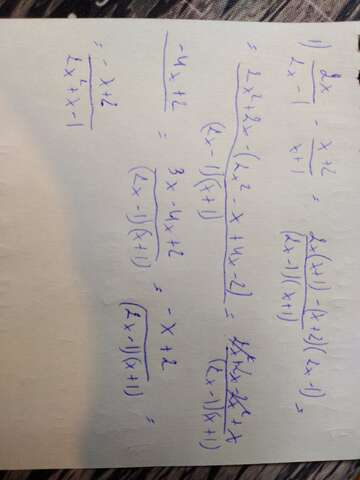 1) 2x/(2x-1) - (x+2)/(x+1) = (2x(x+1) - (x+2)(2x-1))/((2x-1)(x+1)) =
= (2x²+2x-(2x²-x+4x-2))/((2x-1)(x+1)) = (2x²+2x-2x²+x
-4x+2)/((2x-1)(x+1)) = (3x-4x+2)/((2x-1)(x+1)) = (-x+2)/((2x-1)(x+1)) =
= (-x+2)/(2x²+x-1)